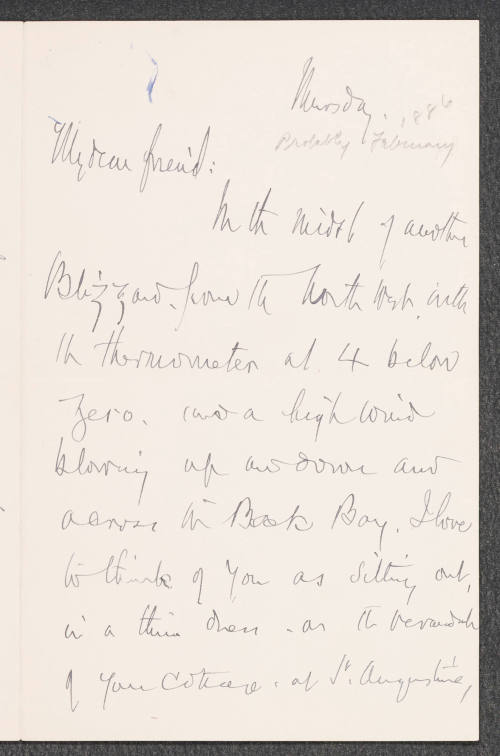 Thursday. 1886
Probably February
My dear friend:
In the midst of another
Blizzard. from the North West, with
the thermometer at 4 below
Zero. and a high wind
blowing up and down and
across the Back Bay. I love
to think of you as sitting out,
in a thin dress - on the verandah
of your Cottage. at St. Augustine,